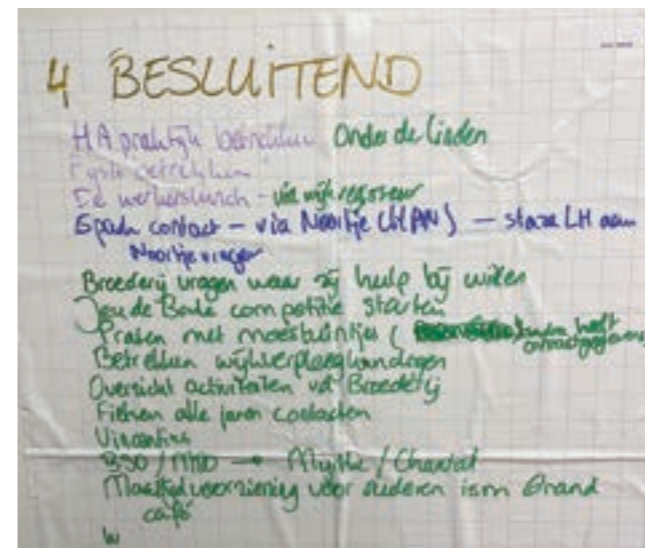 4 BESLUITEND
HA praktijk betrekken Onder de linden
Fysio betrekken
De werkerslunch - via wijkregisseur
contact - via Nooitje (HAN) - stage LH aan
Nooitje vragen
Breederij vragen waar zij hulp bij willen
Jeu de Boule competitie starten
Praten met moestuintjes ( heeft
Betrekken wijkverpleegkundigen
Overzicht activiteiten vd Breederij
Fietsen alle jaren contacten
BSO / MHD → Mythe / Chantal
Maaltijdvoorziening voor ouderen ism Grand
café